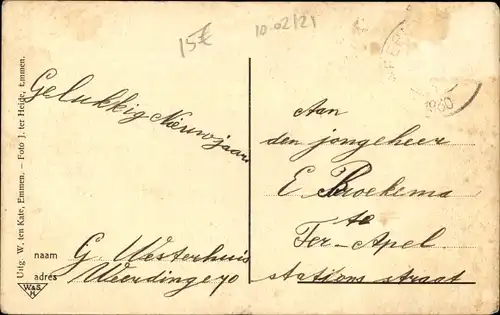 15€
10.02/21
Gelukkig Nieuwjaar
Aan
den jongeheer
E Broekema
te
Ter-Apel
Stationsstraat
naam G. Westerhuis
adres Weerdinge 70
Uitg. W. ten Kate, Emmen. - Foto J. ter Heide, Emmen.
W&S
H